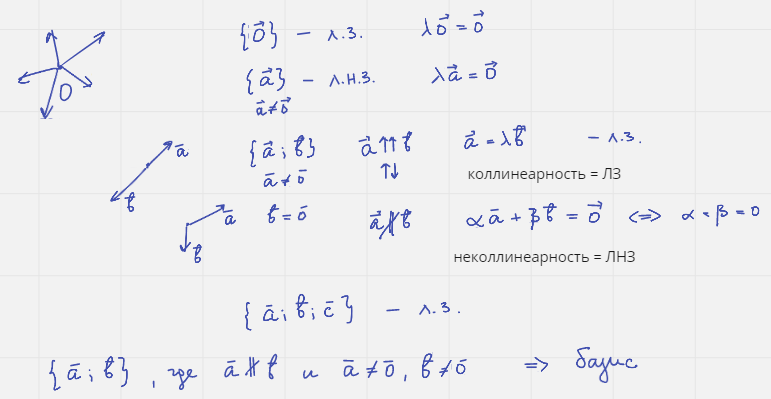 {0⃗} – л.з. λ0⃗ = 0⃗
{a⃗} – л.н.з. λa⃗ = 0⃗
a⃗ ≠ 0⃗
0
{a⃗; b⃗} a⃗ ↑↑ b⃗ a⃗ = λb⃗ – л.з.
a̅
a̅ ≠ 0̅ ↑↓ коллинеарность = ЛЗ
b̅
a̅ b̅ = 0̅ a⃗ ∦ b̅ αa̅ + βb̅ = 0⃗ <=> α = β = 0
b̅
неколлинеарность = ЛНЗ
{a̅; b̅; c̅} – л.з.
{a̅; b̅}, где a̅ ∦ b̅ и a̅ ≠ 0̅, b̅ ≠ 0̅ => базис